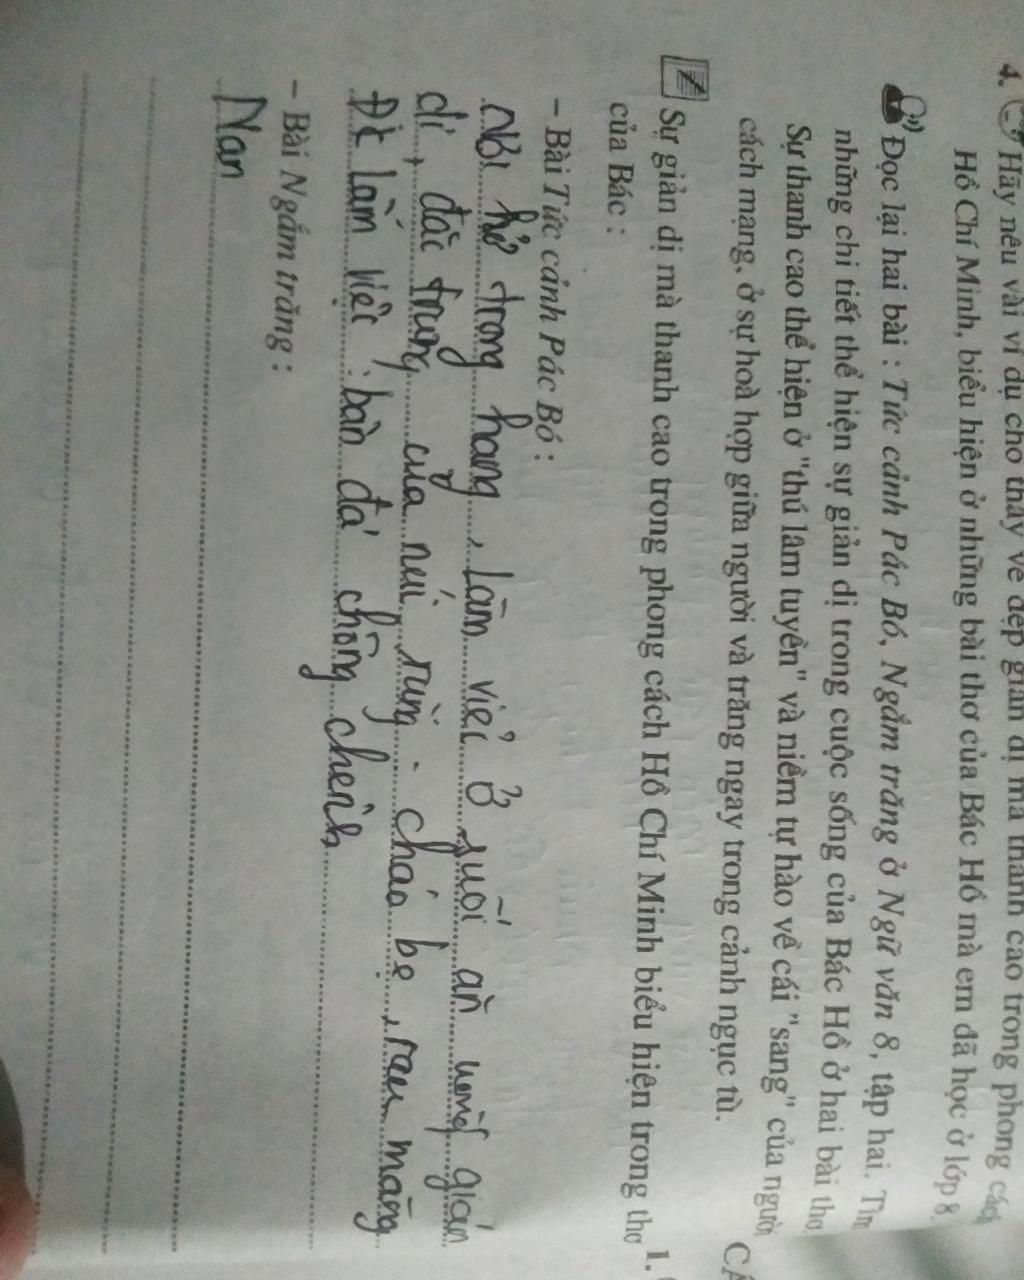 4. Hãy nêu vài ví dụ cho thấy vẻ đẹp giản dị mà thanh cao trong phong cách
Hồ Chí Minh, biểu hiện ở những bài thơ của Bác Hồ mà em đã học ở lớp 8.
Đọc lại hai bài : Tức cảnh Pác Bó, Ngắm trăng ở Ngữ văn 8, tập hai. Tìm
những chi tiết thể hiện sự giản dị trong cuộc sống của Bác Hồ ở hai bài thơ
Sự thanh cao thể hiện ở "thú lâm tuyền" và niềm tự hào về cái "sang" của người
cách mạng, ở sự hoà hợp giữa người và trăng ngay trong cảnh ngục tù.
Sự giản dị mà thanh cao trong phong cách Hồ Chí Minh biểu hiện trong thơ
của Bác :
- Bài Tức cảnh Pác Bó :
Nơi ở trong hang, làm việc ở suối ăn uống giản
dị, đặc trưng của núi rừng - cháo bẹ, rau măng
Đt làm việc : bàn đá chông chênh
- Bài Ngắm trăng :
Nan
1.
CÁ